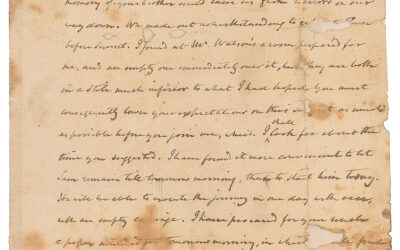 memory of your brother could save us from errors on our
way down. We made out notwithstanding to get
before sunset. I found at Mrs. Watson's a room prepared for
me, and an empty one immediately over it, but they are both
in a state much inferior to what I had hoped. You must
consequently lower your expectations on this subject as much
as possible before you join me, which I shall look for about the
time you suggested. I have found it more convenient to let
Sam remain till tomorrow morning, than to start him today.
He will be able to execute the journey in one day with ease,
with an empty carriage. I have procured for your
a paper tomorrow morning, in which